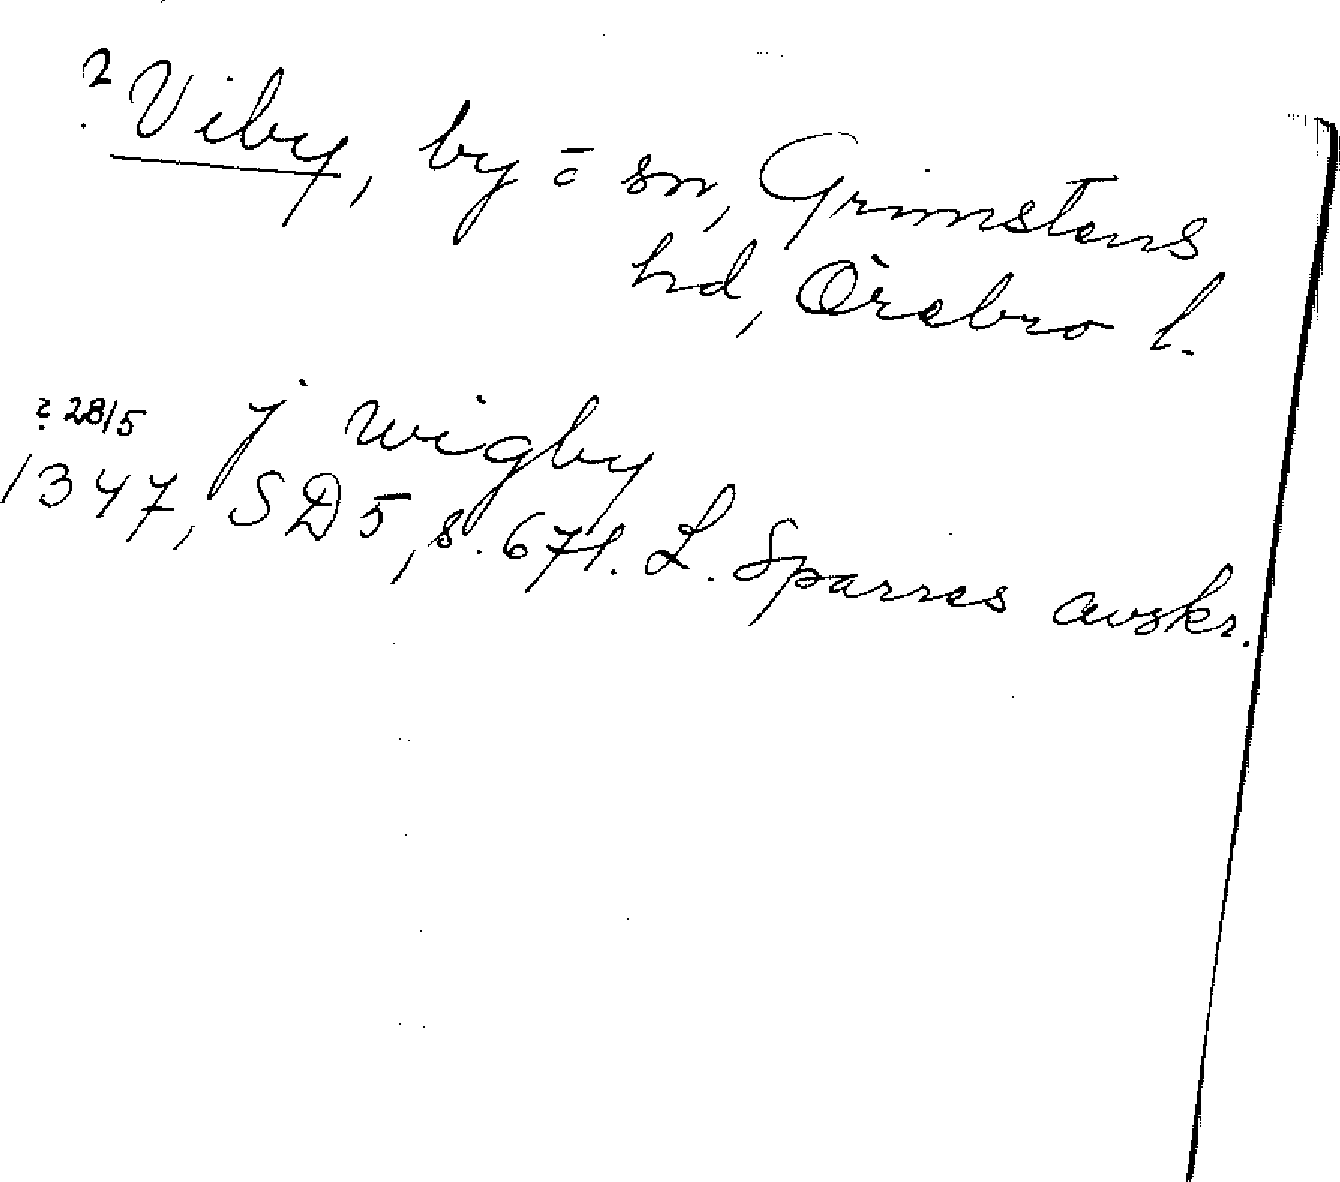 ? Viby, by o sn, Grimstens
hd, Örebro l.
j wigby
? 28/5
1347, SD 5, s. 671. L. Sparres avskr.